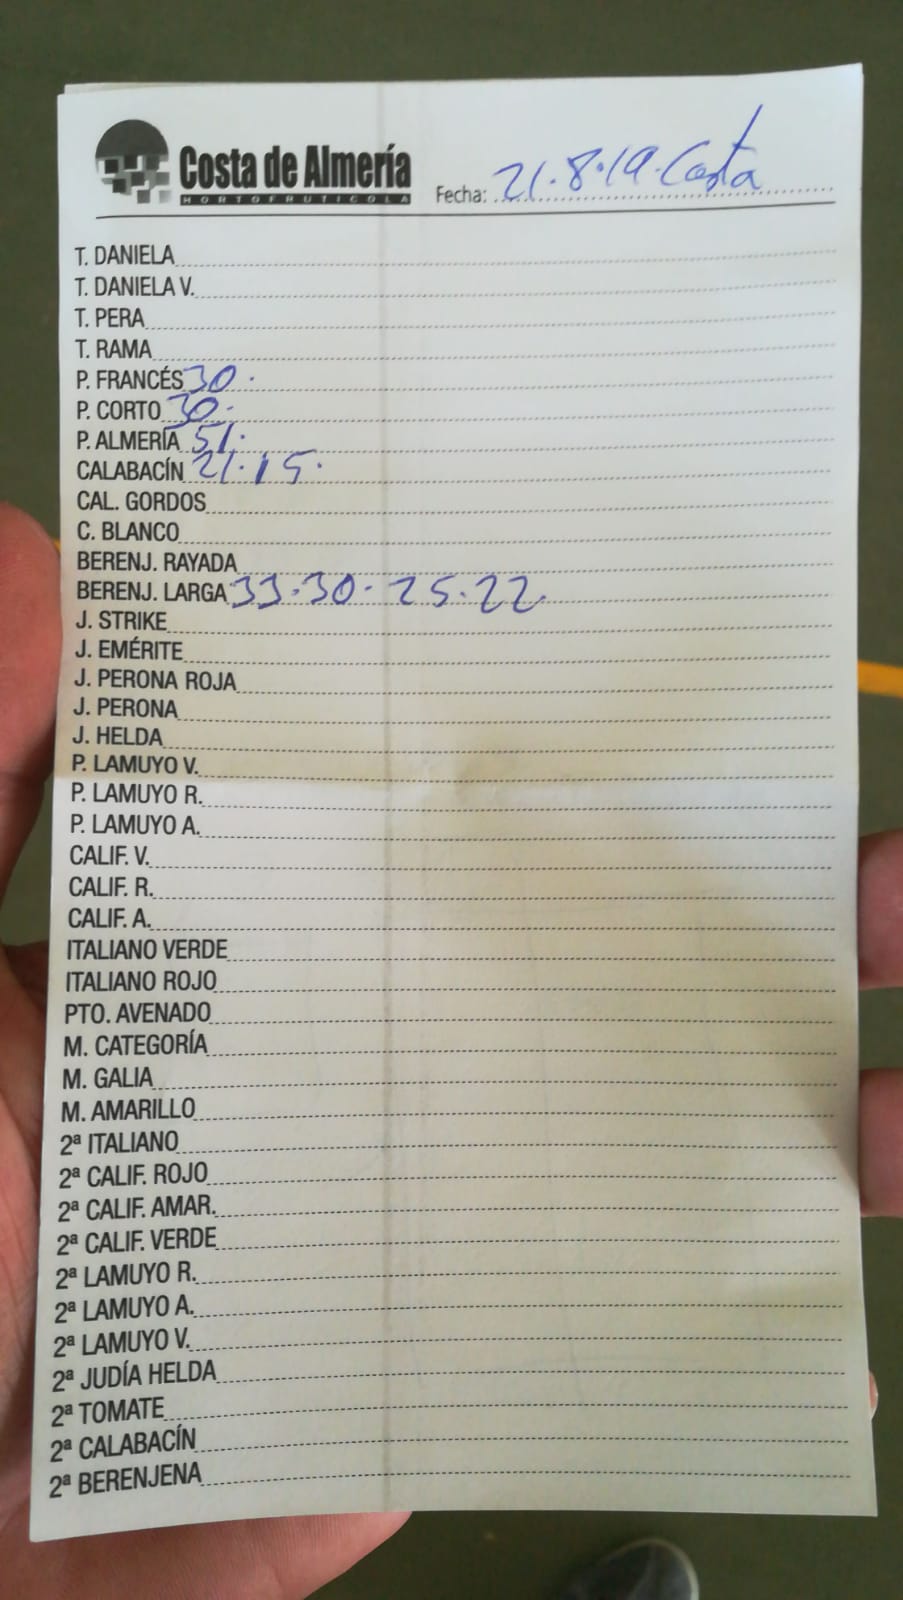 Costa de Almería
HORTOFRUTICOLA
Fecha: 21.8.19. Costa
T. DANIELA
T. DANIELA V.
T. PERA
T. RAMA
P. FRANCÉS 30.
P. CORTO 30.
P. ALMERÍA 51.
CALABACÍN 21.15.
CAL. GORDOS
C. BLANCO
BERENJ. RAYADA
BERENJ. LARGA 33.30.25.22.
J. STRIKE
J. EMÉRITE
J. PERONA ROJA
J. PERONA
J. HELDA
P. LAMUYO V.
P. LAMUYO R.
P. LAMUYO A.
CALIF. V.
CALIF. R.
CALIF. A.
ITALIANO VERDE
ITALIANO ROJO
PTO. AVENADO
M. CATEGORÍA
M. GALIA
M. AMARILLO
2ª ITALIANO
2ª CALIF. ROJO
2ª CALIF. AMAR.
2ª CALIF. VERDE
2ª LAMUYO R.
2ª LAMUYO A.
2ª LAMUYO V.
2ª JUDÍA HELDA
2ª TOMATE
2ª CALABACÍN
2ª BERENJENA